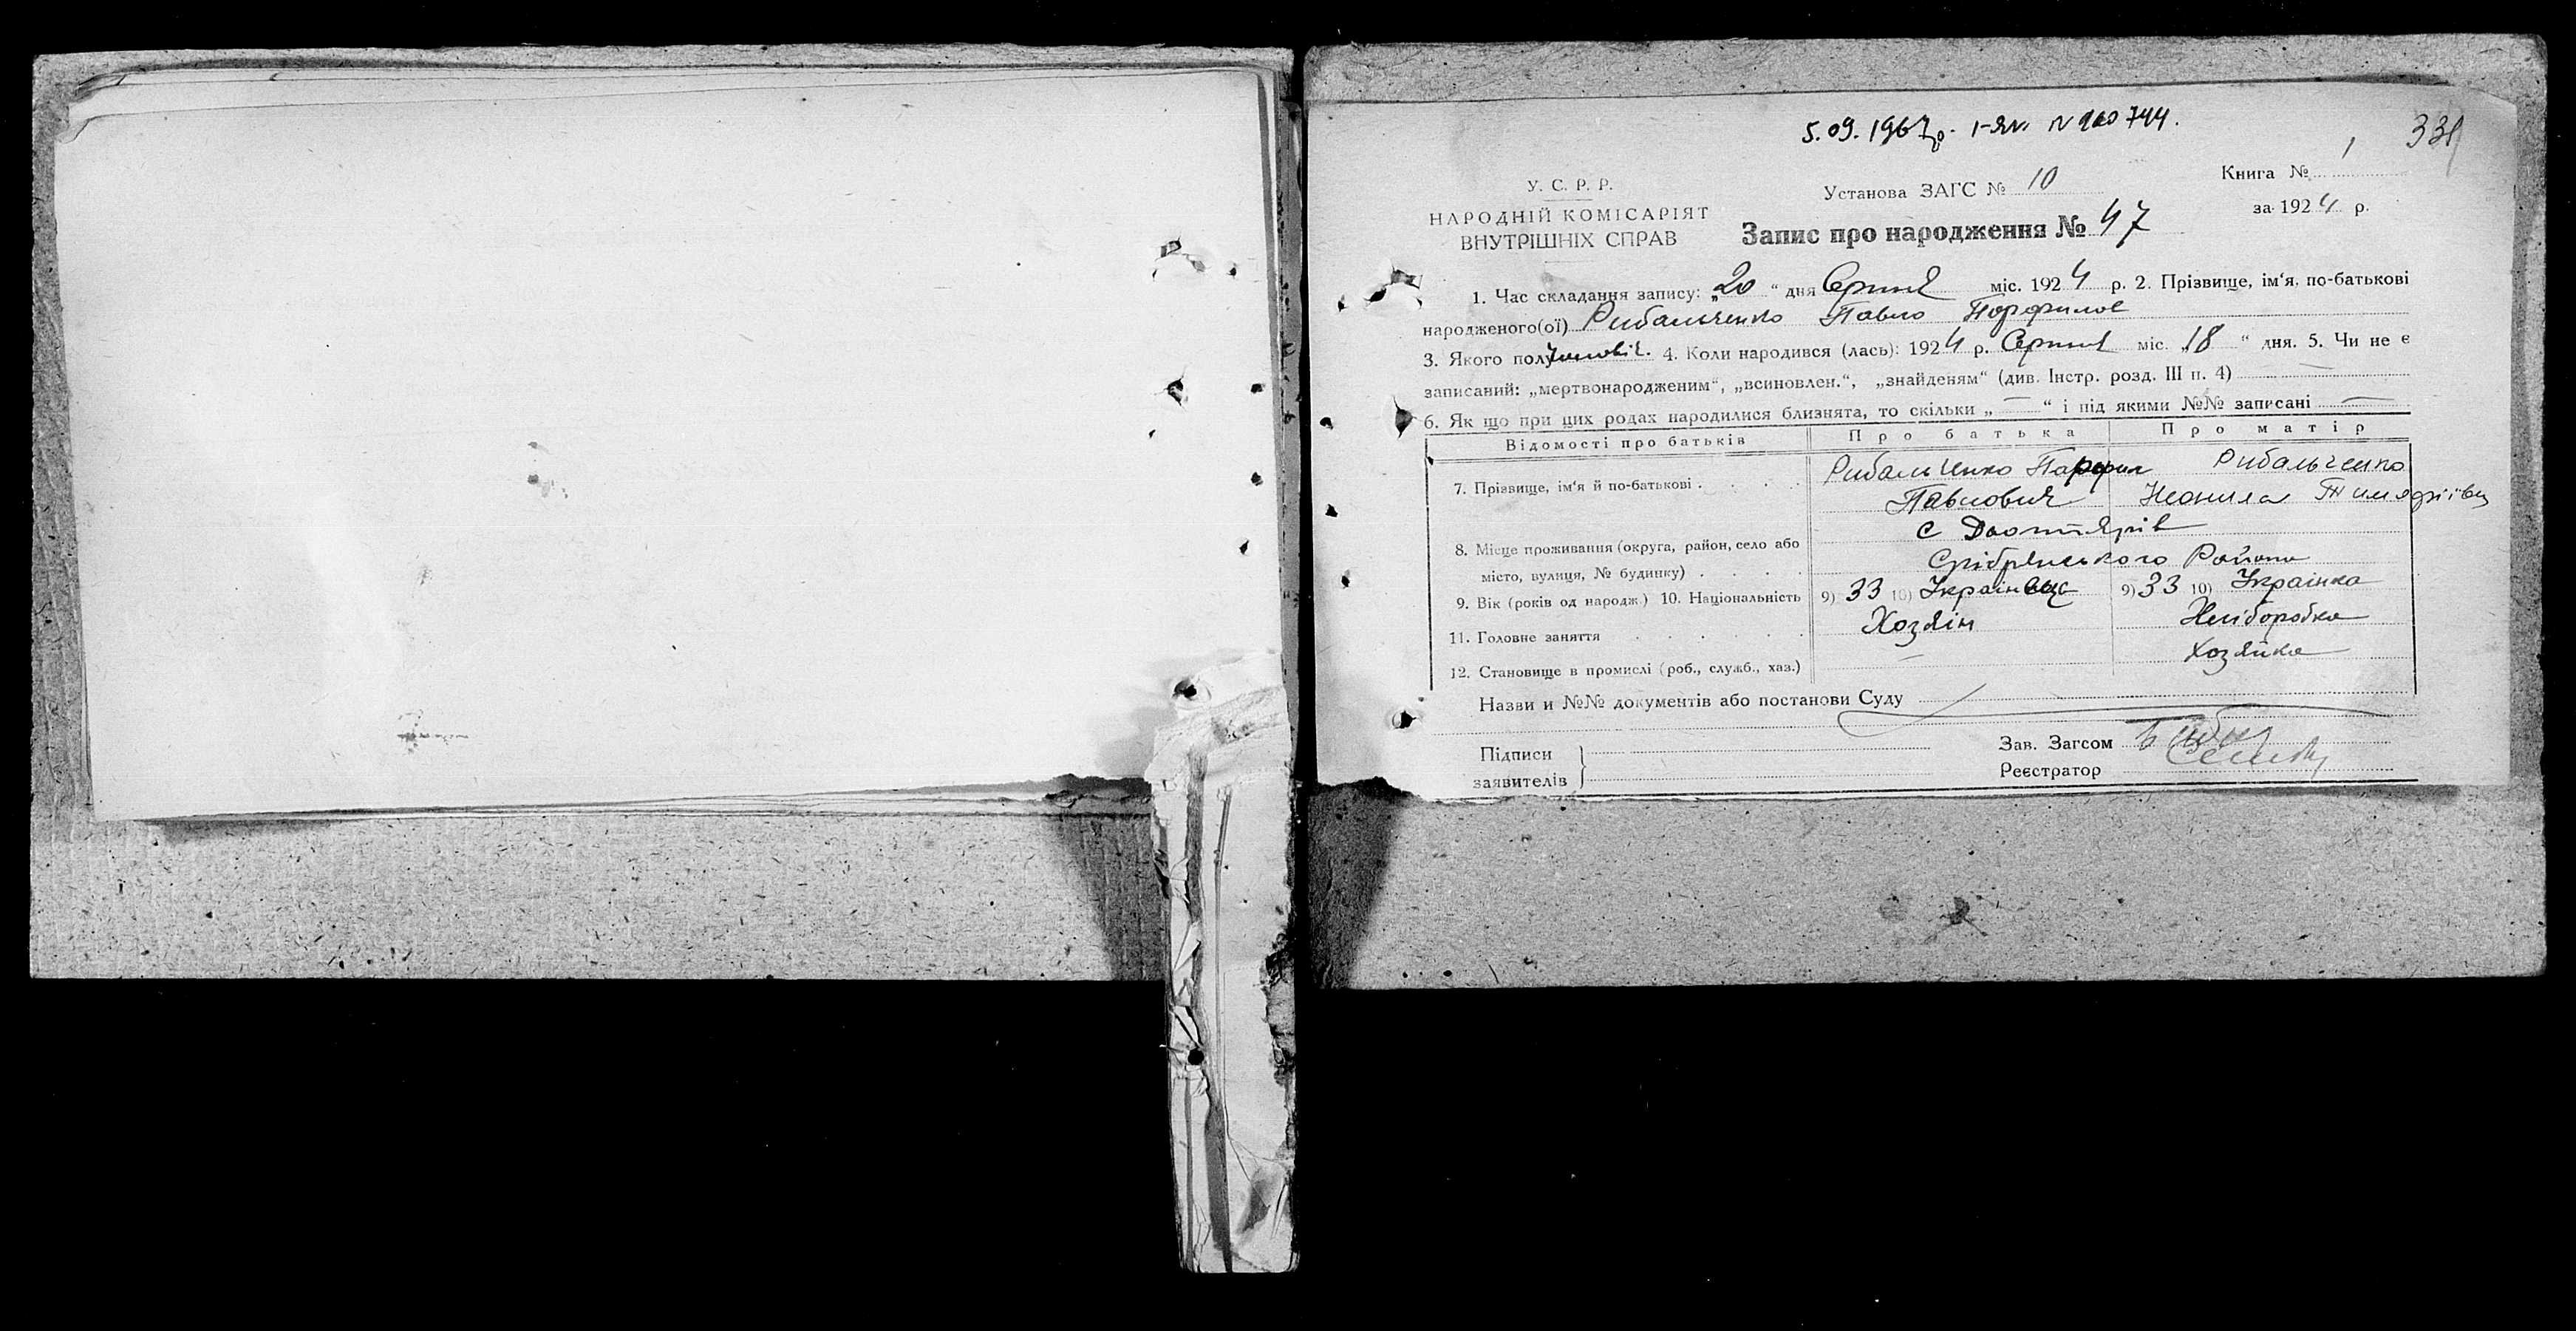 5.09.1967р. І-ЯЛ N 160744.
331
У. С. Р. Р.
НАРОДНІЙ КОМІСАРІЯТ
ВНУТРІШНІХ СПРАВ
Установа ЗАГС № 10
Книга № 1
за 1924 р.
Запис про народження № 47
1. Час складання запису: „20“ дня Серпня міс. 1924 р. 2. Прізвище, ім'я, по-батькові
народженого(ої) Рибальченко Павло Порфилов
3. Якого полу чоловіч. 4. Коли народився (лась): 1924 р. Серпня міс. „18“ дня. 5. Чи не є
записаний: „мертвонародженим“, „всиновлен.“, „знайденям“ (див. Інстр. розд. III п. 4) —
6. Як що при цих родах народилися близнята, то скільки „—“ і під якими №№ записані —
Відомості про батьків Про батька Про матір
7. Прізвище, ім'я й по-батькові . . . . Рибальченко Парфил Рибальченко
Павлович Неонила Тимофіївна
8. Місце проживання (округа, район, село або с Дегтярів
місто, вулиця, № будинку) . . . . Срібрянського Району
9. Вік (років од народж.) 10. Національність 9) 33 10) Українець 9) 33 10) Українка
11. Головне заняття . . . . . . Хозяїн Хліборобка
12. Становище в промислі (роб., служб., хаз.) — Хозяйка
Назви и №№ документів або постанови Суду
Підписи
заявителів
Зав. Загсом
Реєстратор